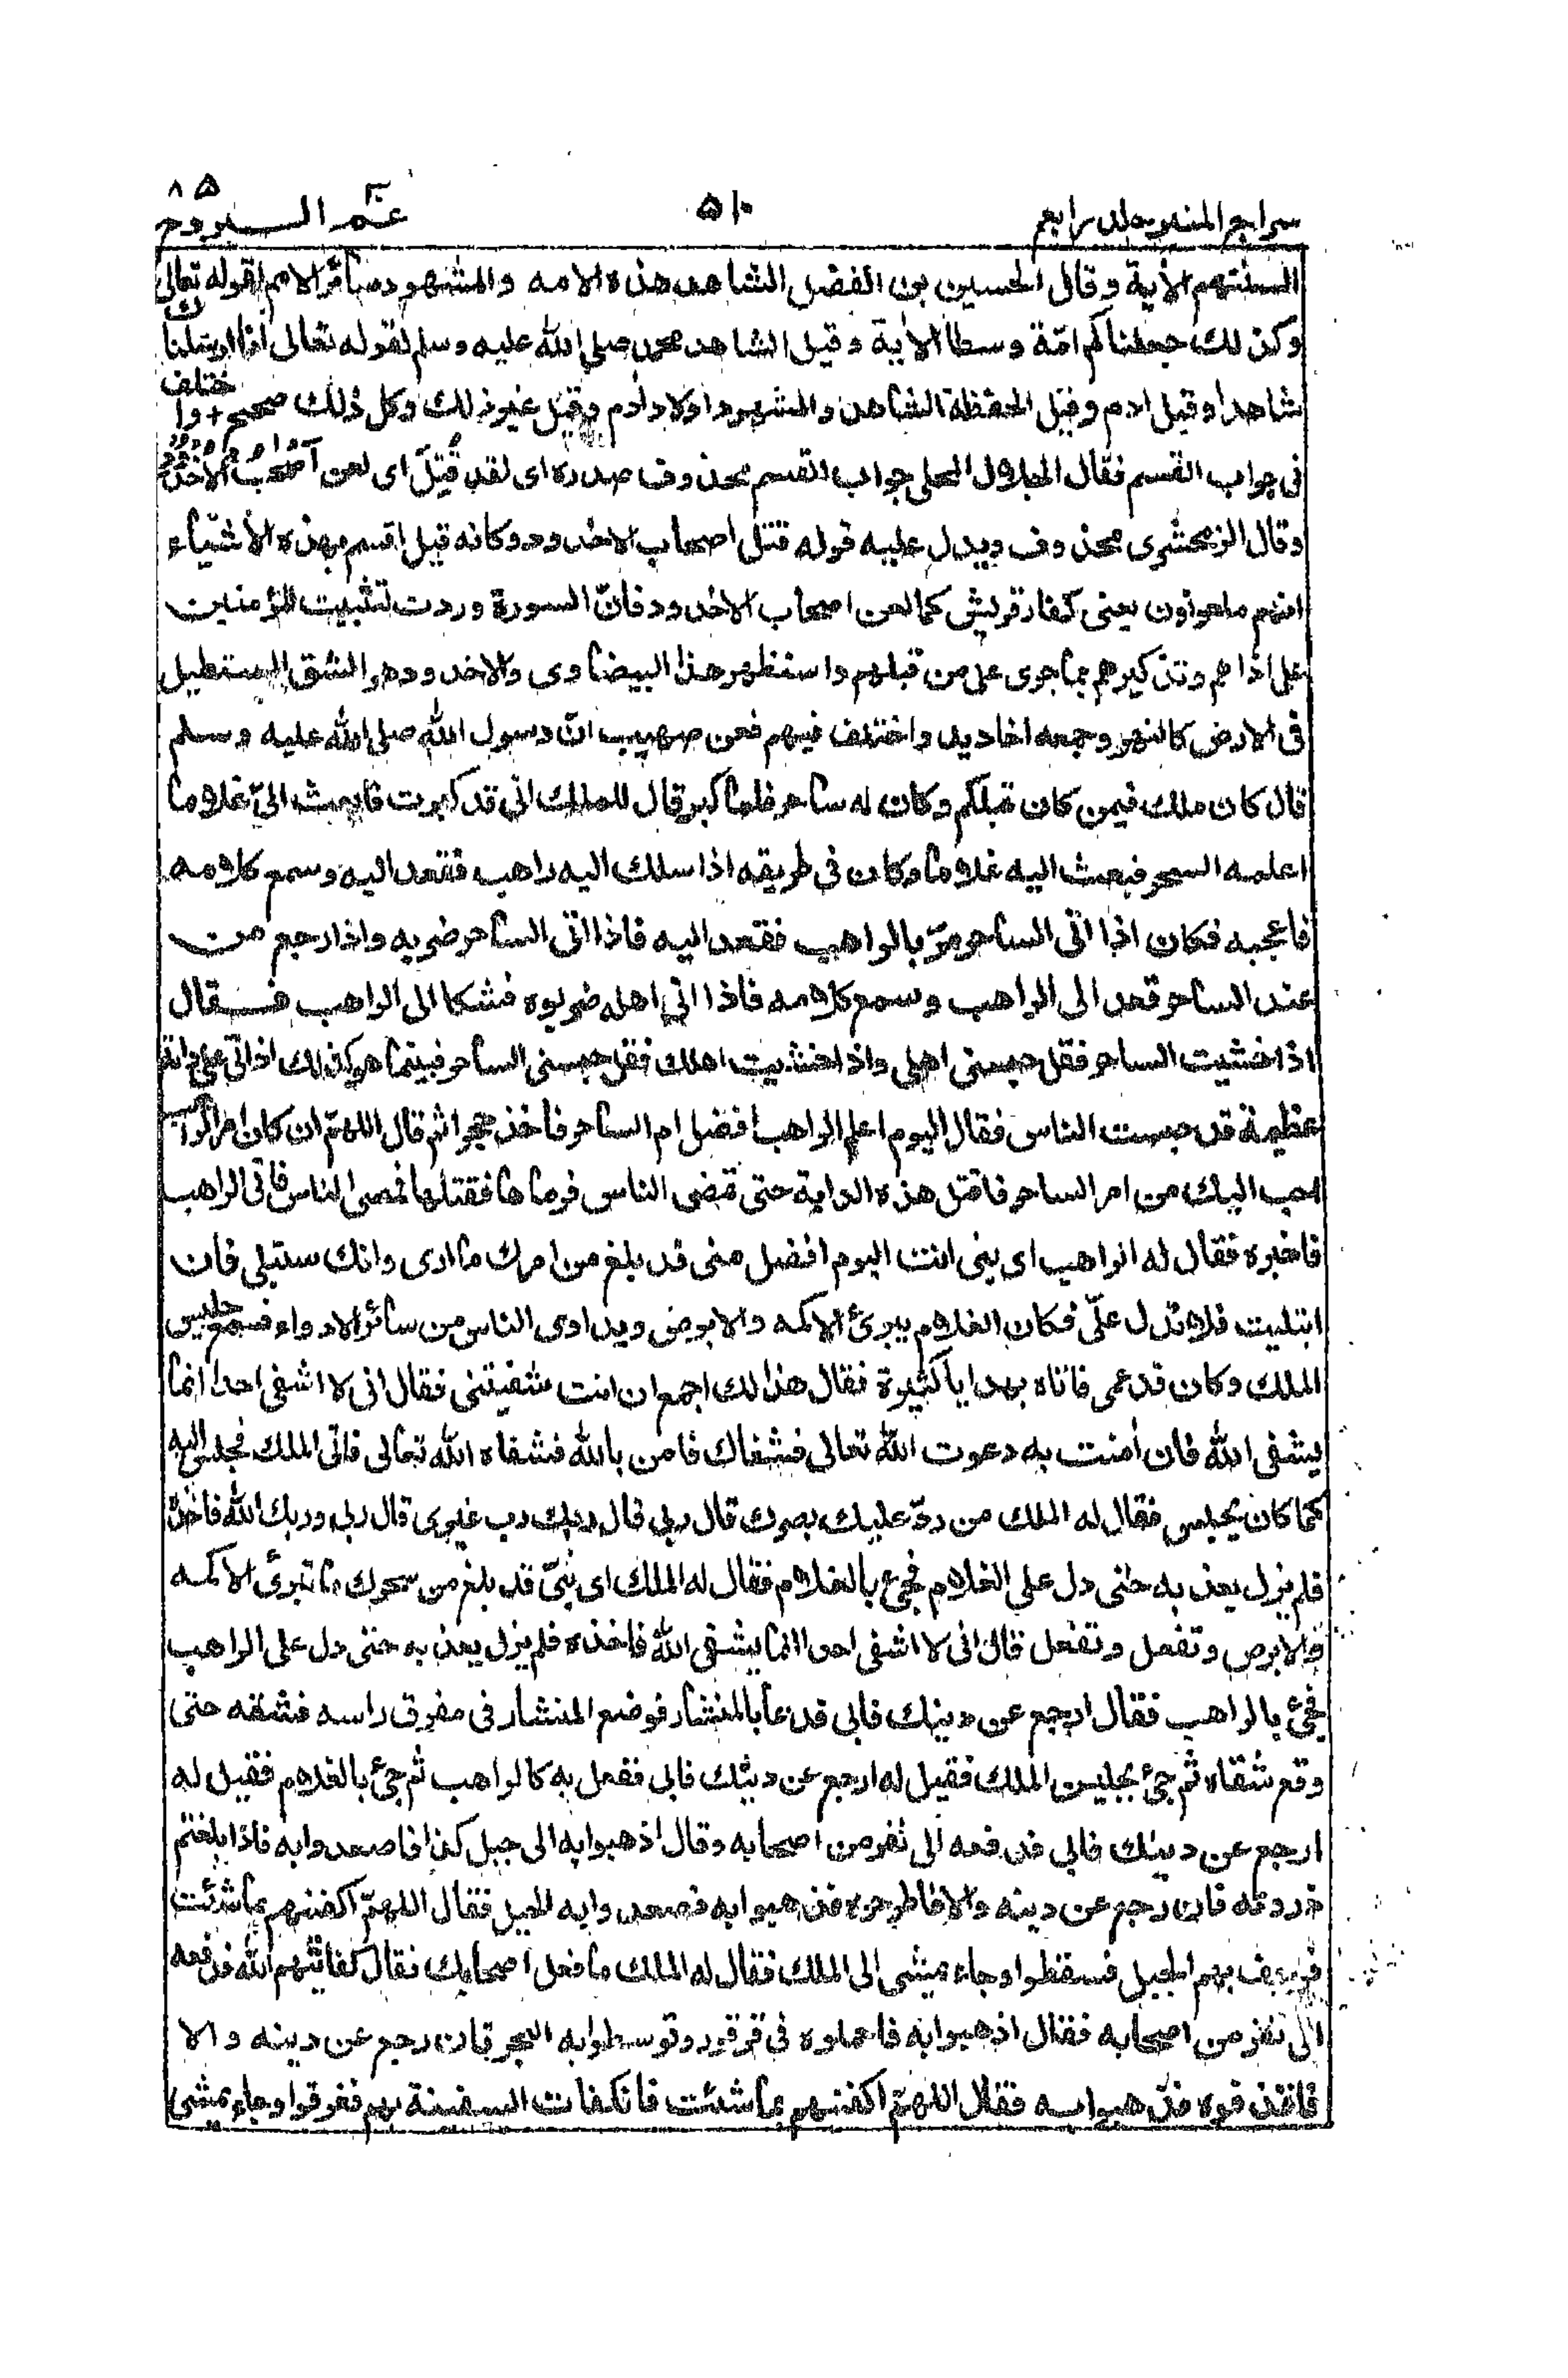 سراج المنیر جلد رابع
۵۱۰
عمّ ۳۰ البروج ۸۵
السنتهم الأية وقال الحسين بن الفضل الشاهد هذه الامه والمشهود سائر الامم لقوله تعالى
وكذلك جعلناكم امّة وسطا الأية وقيل الشاهد محمد صلى الله عليه وسلم لقوله تعالى انا ارسلناك
شاهدا وقيل ادم وقيل الحفظة الشاهد والمشهود اولاد ادم وقيل غير ذلك وكل ذلك صحيح + واختلف
فى جواب القسم فقال الجلال المحلى جواب القسم محذوف صدره اى لقد قُتِلَ اى لعن اَصْحٰبُ الْاُخْدُوْدِ
وقال الزمخشرى محذوف ويدل عليه قوله قتل اصحاب الاخدود وكانه قيل اقسم بهذه الأشياء
انهم ملعونون يعنى كفار قريش كما لعن اصحاب الاخدود فانّ السورة وردت لتثبيت المؤمنين
على اذاهم وتذكيرهم بما جرى على من قبلهم واستظهر هذا البيضاوى والاخدود هو الشق المستطيل
فى الارض كالنهر وجمعه اخاديد واختلف فيهم فعن صهيب انّ رسول الله صلى الله عليه وسلم
قال كان ملك فيمن كان قبلكم وكان له ساحر فلما كبر قال للملك انى قد كبرت فابعث الىّ غلاما
اعلمه السحر فبعث اليه غلاما وكان فى طريقه اذا سلك اليه راهب فقعد اليه وسمع كلامه
فاعجبه فكان اذا اتى الساحر مرّ بالراهب فقعد اليه فاذا اتى الساحر ضربه واذا رجع من
عند الساحر قعد الى الراهب وسمع كلامه فاذا اتى اهله ضربوه فشكا الى الراهب فقال
اذا خشيت الساحر فقل حبسنى اهلى واذا خشيت اهلك فقل حبسنى الساحر فبينما هو كذلك اذ اتى على دابة
عظيمة قد حبست الناس فقال اليوم اعلم الراهب افضل ام الساحر فاخذ حجرا ثم قال اللهمّ ان كان امر الراهب
احب اليك من امر الساحر فاقتل هذه الدابة حتى تمضى الناس فرماها فقتلها فمضى الناس فاتى الراهب
فاخبره فقال له الراهب اى بنى انت اليوم افضل منى قد بلغ من امرك ما ارى وانك ستبتلى فان
ابتليت فلا تدل علىّ فكان الغلام يبرئ الاكمه والابرص ويداوى الناس من سائر الادواء فسمع جليس
الملك وكان قد عمى فاتاه بهدايا كثيرة فقال هذا لك اجمع ان انت شفيتنى فقال انى لا اشفى احدا انما
يشفى الله فان أمنت به دعوت الله تعالى فشفاك فامن بالله فشفاه الله تعالى فاتى الملك فجلس اليه
كما كان يجلس فقال له الملك من ردّ عليك بصرك قال ربى قال ربك رب غيرى قال ربى وربك الله فاخذه
فلم يزل يعذبه حتى دل على الغلام فجئ بالغلام فقال له الملك اى بنىّ قد بلغ من سحرك ما تبرئ الاكمه
والابرص وتفعل وتفعل قال انى لا اشفى احدا انما يشفى الله فاخذه فلم يزل يعذبه حتى دل على الراهب
فجئ بالراهب فقال ارجع عن دينك فابى فدعا بالمنشار فوضع المنشار فى مفرق راسه فشقه حتى
وقع شقاه ثم جئ بجليس الملك فقيل له ارجع عن دينك فابى ففعل به كالراهب ثم جئ بالغلام فقيل له
ارجع عن دينك فابى فدفعه الى نفر من اصحابه وقال اذهبوا به الى جبل كذا فاصعدوا به فاذا بلغتم
ذروته فان رجع عن دينه والا فاطرحوه فذهبوا به فصعدوا به الجبل فقال اللهمّ اكفنيهم بما شئت
فرجف بهم الجبل فسقطوا وجاء يمشى الى الملك فقال له الملك ما فعل اصحابك فقال كفانيهم الله فدفعه
الى نفر من اصحابه فقال اذهبوا به فاحملوه فى قرقور وتوسطوا به البحر فان رجع عن دينه والا
فاقذفوه فذهبوا به فقال اللهمّ اكفنيهم بما شئت فانكفات السفينة بهم فغرقوا وجاء يمشى